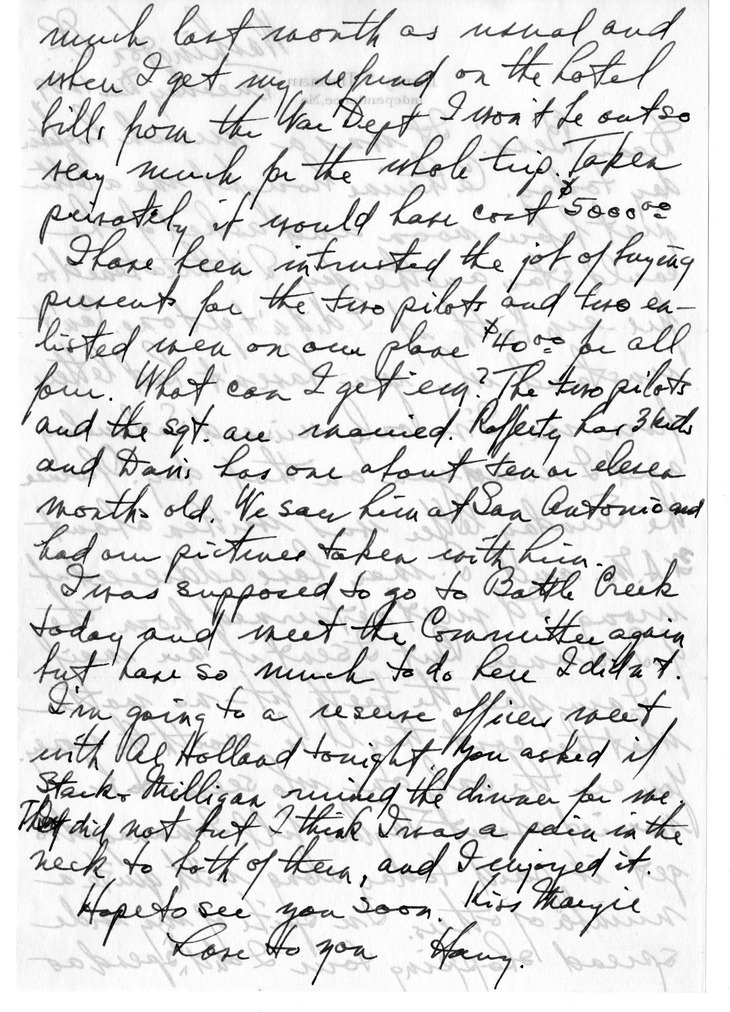 much last month as usual and
when I get my refund on the hotel
bills from the War Dept I won't be out so
very much for the whole trip. Taken
privately it would have cost $5000.00
I have been intrusted the job of buying
presents for the two pilots and two en-
listed men on our plane $40.00 for all
four. What can I get em? The two pilots
and the sgt. are married. Rafferty has 3 kids
and Davis has one about ten or eleven
months old. We saw him at San Antonio and
had our pictures taken with him.
I was supposed to go to Battle Creek
today and meet the Committee again
but have so much to do here I didn't.
I'm going to a reserve officers meet
with Al Holland tonight. You asked if
Stark & Milligan ruined the dinner for me
They did not but I think I was a pain in the
neck to both of them, and I enjoyed it.
Hope to see you soon. Kiss Margie
Love to you Harry.